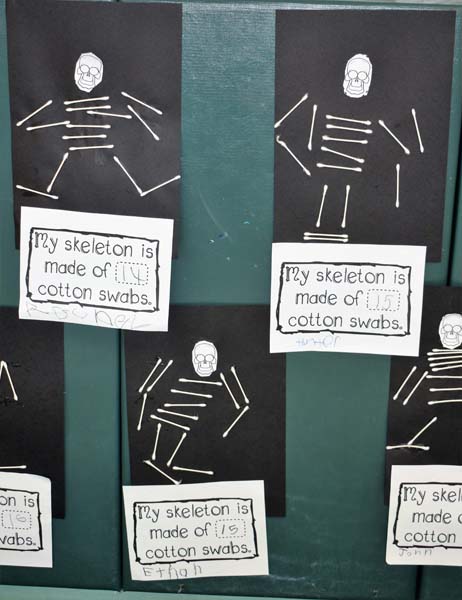 My skeleton is
made of 14
cotton swabs.
My skeleton is
made of 15
cotton swabs.
Hunter
on is
16
wabs.
My skeleton is
made of 15
cotton swabs.
Ethan
My skel
made o
cotton
John